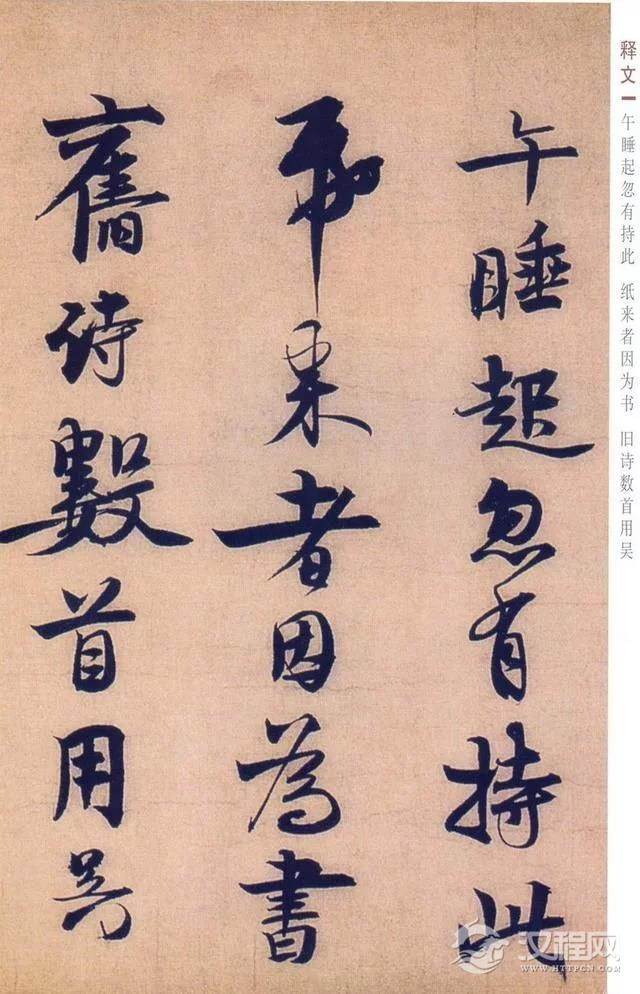 午睡起忽有持此
帋来者因為書
舊诗數首用吴
释文
午睡起忽有持此 纸来者因为书 旧诗数首用吴
汉程网
HTTPCN.COM